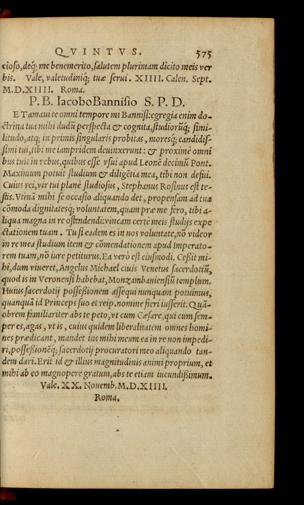 QVINTVS. 575
cioso, deq́; me benemerito, salutem plurimam dicito meis ver
bis. Vale, valetudiniq́; tuæ serui. XIIII. Calen. Sept.
M.D.XIIII. Roma.
P. B. Iacobo Bannisio S. P. D.
ETamaui te omni tempore mi Bannisi: egregia enim do-
ctrina tua mihi dudū perspecta & cognita, studiorūq́; simi-
litudo, atq́; in primis singularis probitas, moresq́; candidis-
simi tui, tibi me iampridem deuinxerunt: & proximè omni
bus tuis in rebus, quibus esse vsui apud Leonē decimū Pont.
Maximum potuit studium & diligētia mea, tibi non defui.
Cuius rei, vir tui planè studiosus, Stephanus Rosinus est te-
stis. Vtinā mihi se occasio aliquando det, propensam ad tua
cōmoda dignitatesq́; voluntatem, quam præ me fero, tibi a-
liqua magna in re ostendendi: vincam certè meis studijs expe
ctationem tuam. Tu si eadem es in nos voluntate, nō videor
in re mea studium item & cōmendationem apud Imperato-
rem tuam, nō iure petiturus. Ea verò est eiusmodi. Cessit mi-
hi, dum viueret, Angelus Michaël ciuis Venetus sacerdotiū,
quod is in Veronensi habebat, Monzanbaniensiū templum.
Huius sacerdotij possessionem assequi nunquam potuimus,
quanquā id Principis suo et reip. nomine fieri iusserit. Quā-
obrem familiariter abs te peto, vt cum Cæsare, qui cum sem-
per es, agas, vt is, cuius quidem liberalitatem omnes homi-
nes prædicant, mandet ius mihi meum ea in re non impedi-
ri, possessionēq́; sacerdotij procuratori meo aliquando tan-
dem dari. Erit id & illius magnitudinis animi proprium, et
mihi ab eo magnopere gratum, abs te etiam iucundissimum.
Vale. XX. Nouemb. M.D.XIIII.
Roma.